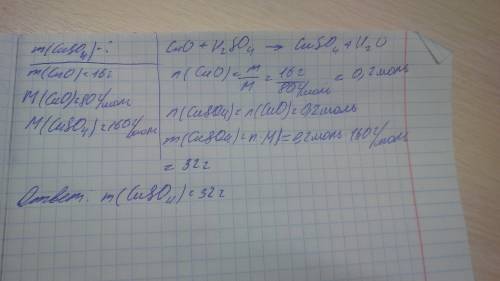 m(CuSO₄)-?
m(CuO)=16г
M(CuO)=80г/моль
M(CuSO₄)=160г/моль
CuO + H₂SO₄ → CuSO₄ + H₂O
n(CuO) = m/M = 16г/80г/моль = 0,2моль
n(CuSO₄) = n(CuO) = 0,2моль
m(CuSO₄) = n·M = 0,2моль·160г/моль
= 32г
Ответ: m(CuSO₄) = 32г